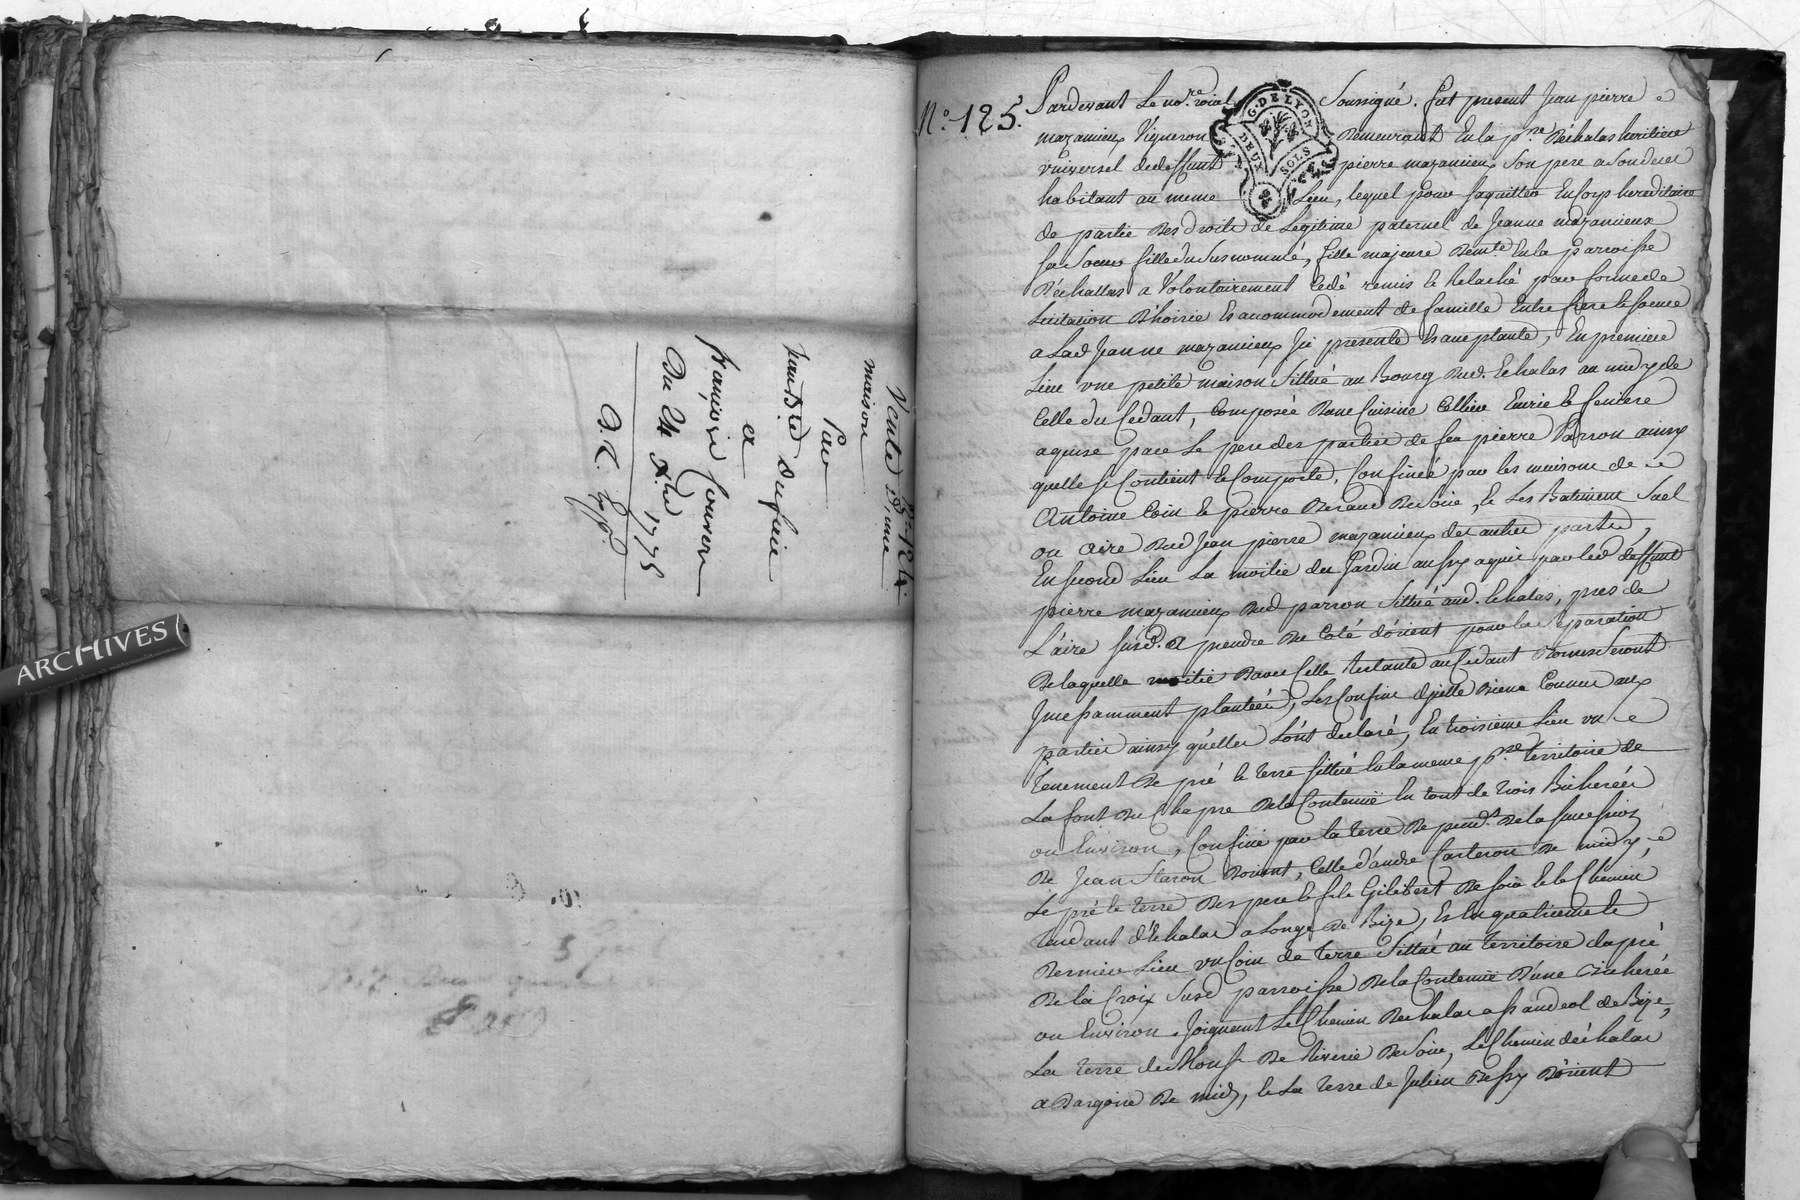 Nº 124.
Vente d'une
maison
Par
Jean B.te dufeu
a
françoise
Du 24 A.
1775
ARCHIVES
Nº 125.
G. DE LYON
DEUX SOLS
Pardevant Le no.re roial Soussigné. fut present Jean pierre
mazamieux Vigneron Demeurant En la p.sse Dechalas heritier
vniversel de deffunt pierre mazamieux Son pere a Son deces
habitant au meme Lieu, lequel pour Saquitter En Corps hereditaire
de partie Des droits de Legitime paternel de Jeanne mazamieux
Sa Soeur fille du Susnommé, fille majeure Dem.te En la parroisse
D'échallas a Volontairement Cedé remis et Relaché par forme de
Licitation D'hoirie Et acommodement de famille Entre frere et Soeur
a Lad Jeanne mazamieux Jci presente Et acceptante, En premiere
Lieu vne petite maison Sittué au Bourg Dud. Echalas au midy de
Celle du Cedant, Composée D'une Cuisine Cellier Ecurie et feniere
aquise par Le pere des parties de feu pierre Parron ainsy
quelle Se Contient et Comporte, Confinée par les maisons de
Antoine Coin et pierre Besane De Soir, et Les Batiment Suel
ou aire Dud Jean pierre mazamieux des autres parts,
En Second Lieu La moitié du Jardin aussy aquis par led deffunt
pierre mazamieux Dud parron Sittué aud. Echalas, prés de
L'aire Susd. a prendre Du Coté d'orient pour la Separation
De laquelle moitié D'avec Celle Restante au Cedant Bornes Seront
Jncessamment plantées, Les Confins d'jcelle Biens Connus aux
parties ainsy qu'elles L'ont declaré, En troisieme Lieu vn
Tenement De pré et terre Sittué En la meme p.sse territoire de
La font Du Chapre De la Contenüe En tout de trois Bicherées
ou Environ, Confiné par la terre De pend.t De la Succession
De Jean Staron D'orient, Celle d'andré Carteron De midy,
Le pré et terre Des pere et fils Gilibert De Soir et le Chemin
tendant d'Echalas a Longe De Bize, Et En quatrieme et
Dernier Lieu vn Coin de terre Sittué au territoire du pré
De la Croix Susd parroisse De la Contenüe D'une Bicherée
ou Environ, Joignant Le Chemin Dechalas a St andeol de Bize,
La terre de Mons.r De Riverie De Soir, Le Chemin déchalas
a Dargoire De midy, et La terre de Julien Bessy D'orient